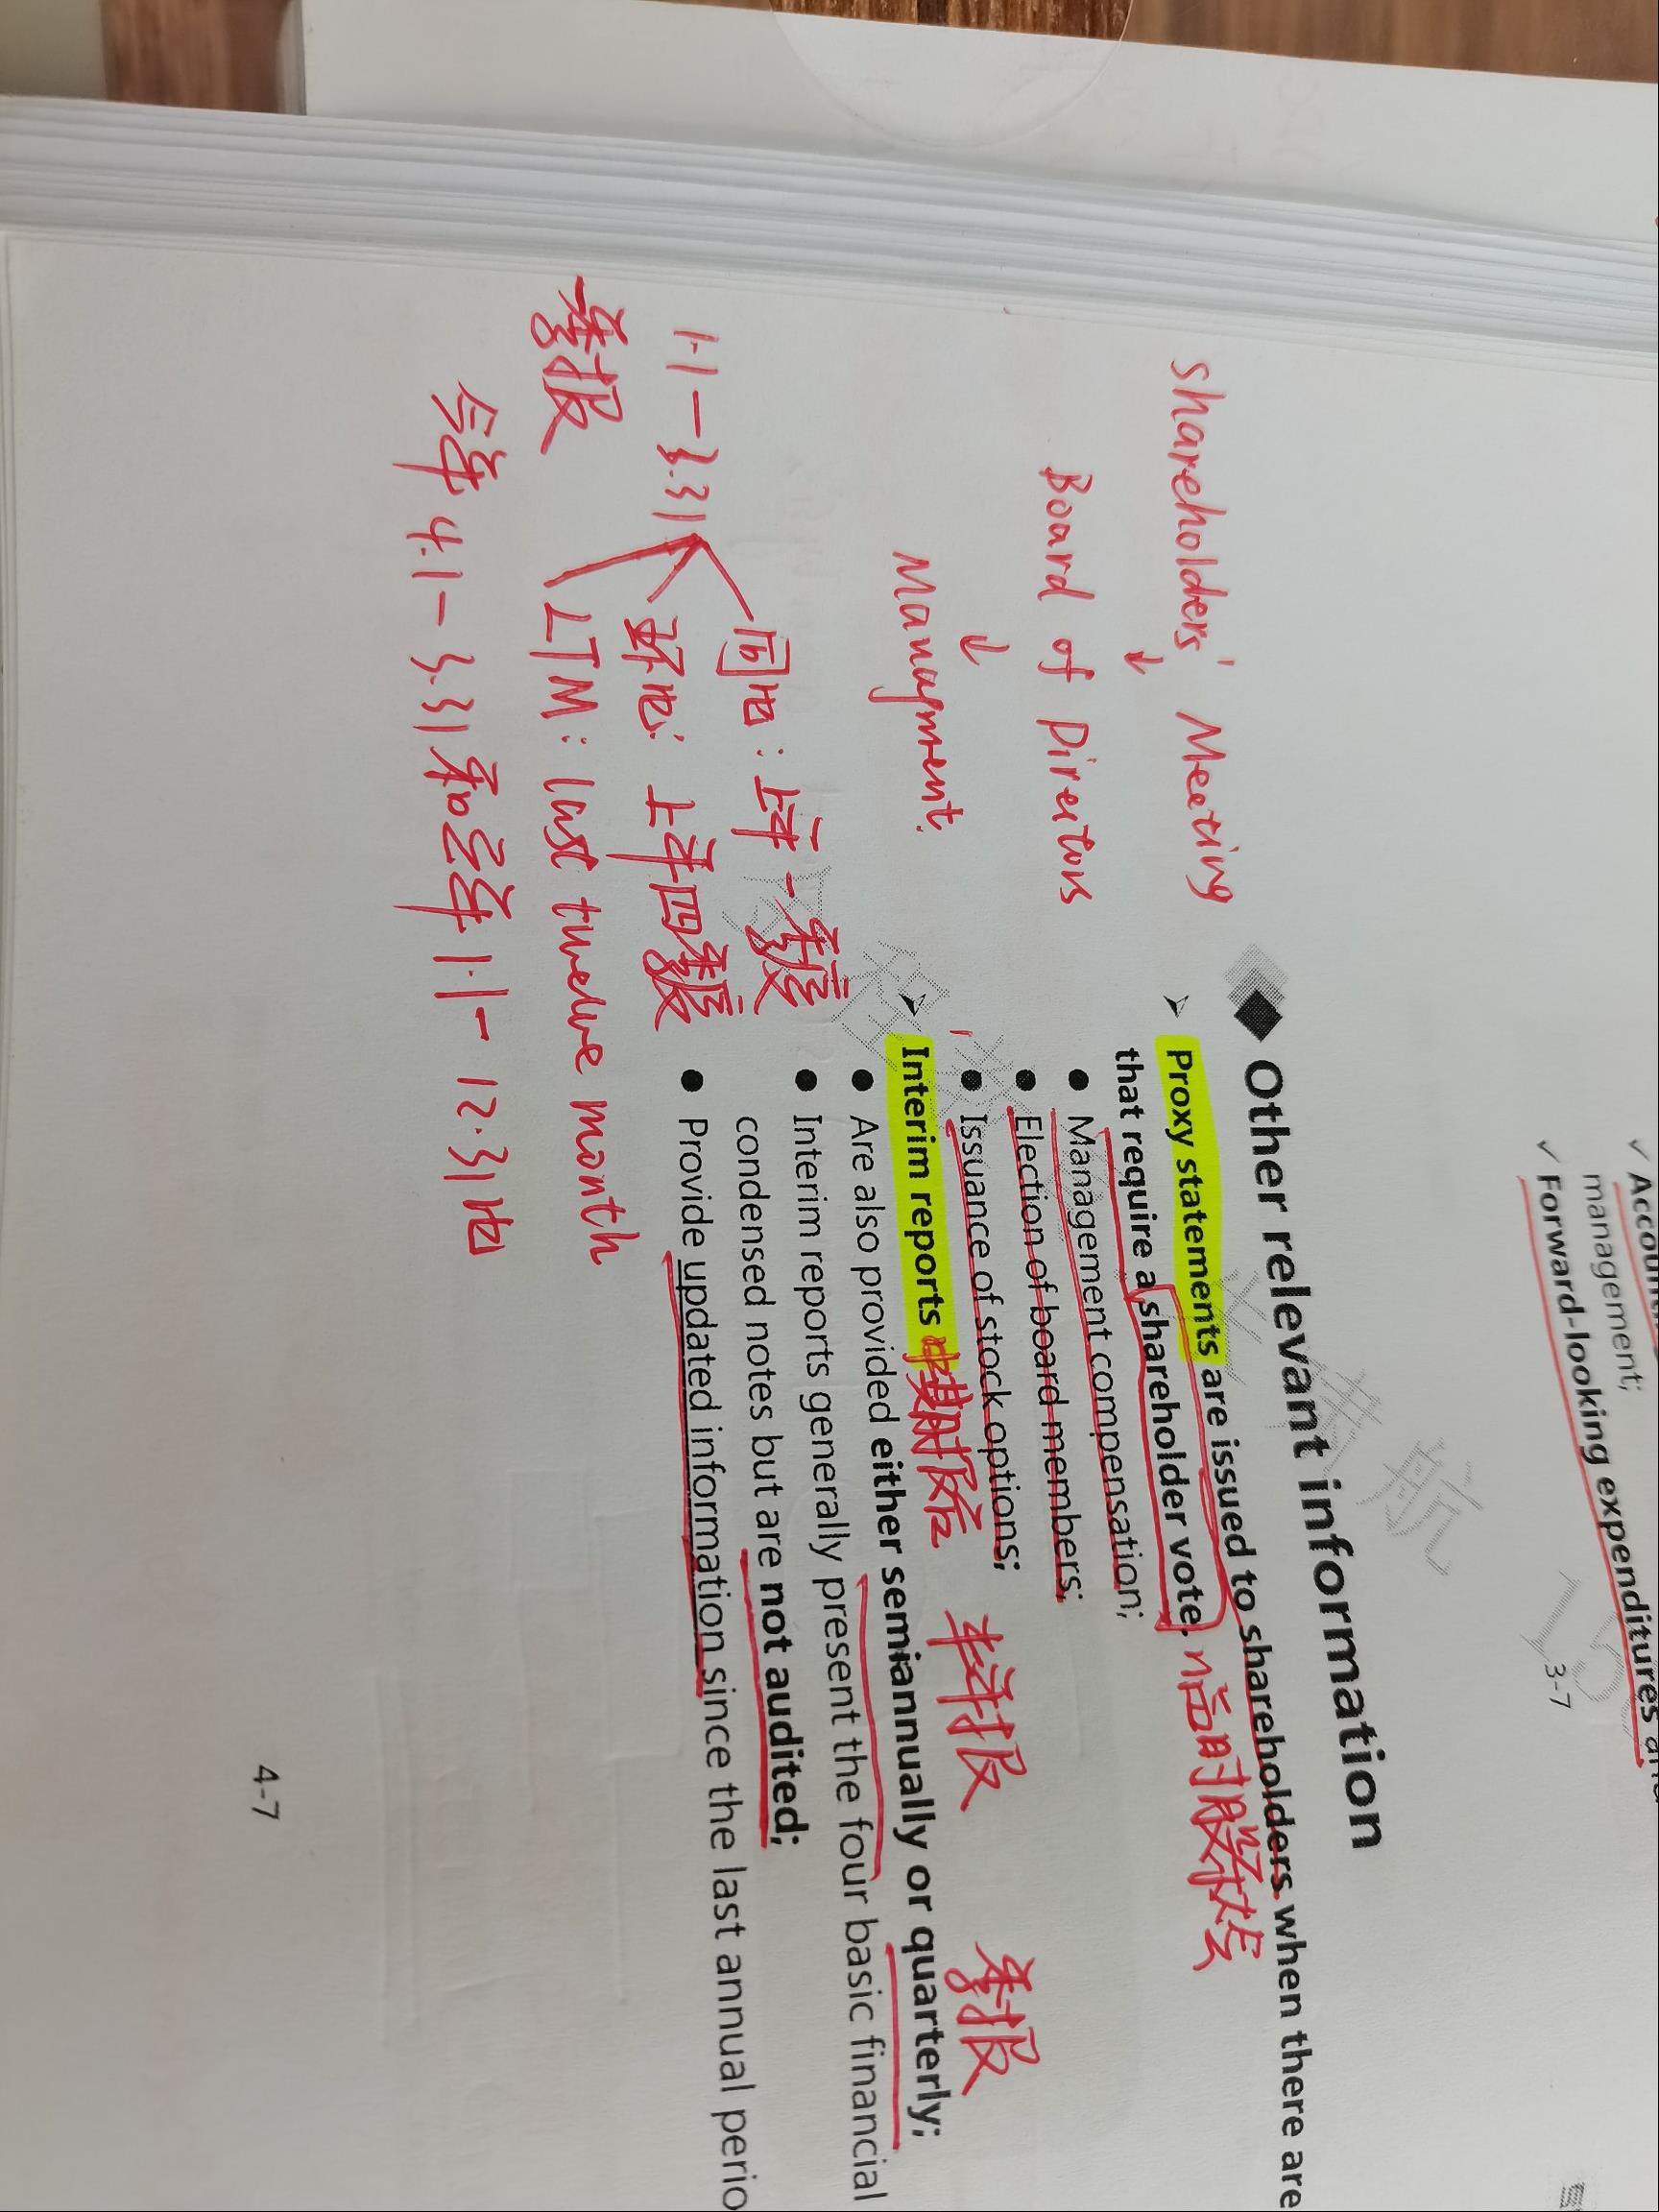 ✓ Accoun
management;
✓ Forward-looking expenditures an
3-7
◆ Other relevant information
➢ Proxy statements are issued to shareholders when there are
that require a shareholder vote. 临时股东大会
● Management compensation;
● Election of board members;
● Issuance of stock options;
➢ Interim reports 中期财报 半年报 季报
● Are also provided either semiannually or quarterly;
● Interim reports generally present the four basic financial
condensed notes but are not audited;
● Provide updated information since the last annual perio
4-7
Shareholders' Meeting
↓
Board of Directors
↓
Managment.
1.1 — 3.31
一季报
同比: 上年一季度
环比: 上年四季度
LTM: last twelve month
今年 4.1 — 3.31 和去年 1.1 — 12.31比